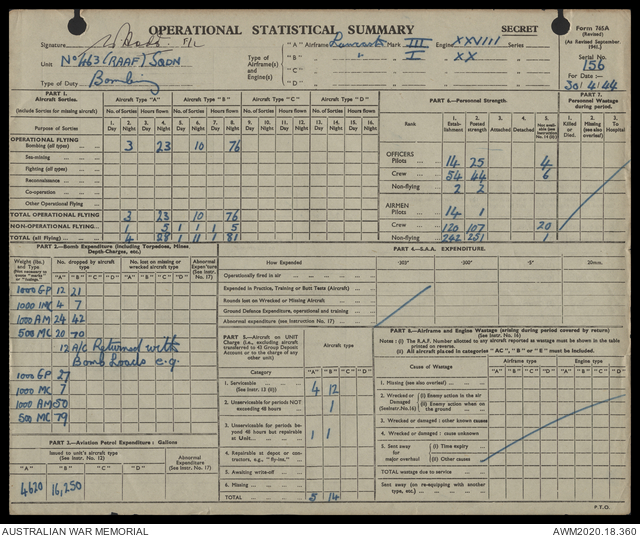 OPERATIONAL STATISTICAL SUMMARY
SECRET
Form 765A
(Revised)
(As Revised September 1941.)
Signature F/L
Unit No 463 (RAAF) SQDN
Type of Duty Bombing
Type of Airframe(s) and Engine(s)
"A" Airframe Lancaster Mark III Engine XXVIII Series
"B" " I XX
"C"
"D"
Serial No. 156
For Date :— 30/4/44
PART 1.
Aircraft Sorties.
(include Sorties for missing aircraft)
Aircraft Type "A" Aircraft Type "B" Aircraft Type "C" Aircraft Type "D"
No. of Sorties Hours flown No. of Sorties Hours flown No. of Sorties Hours flown No. of Sorties Hours flown
Purpose of Sorties
1. Day 2. Night 3. Day 4. Night 5. Day 6. Night 7. Day 8. Night 9. Day 10. Night 11. Day 12. Night 13. Day 14. Night 15. Day 16. Night
OPERATIONAL FLYING
Bombing (all types) 3 23 10 76
Sea-mining
Fighting (all types)
Reconnaissance
Co-operation
Other Operational Flying
TOTAL OPERATIONAL FLYING 3 23 10 76
NON-OPERATIONAL FLYING 1 5 1 1 1 5
TOTAL (all flying) 4 28 1 11 1 81
PART 6.—Personnel Strength.
Rank
1. Establishment 2. Posted strength 3. Attached 4. Detached 5. Not available (see Instruction No. 14 (ii))
OFFICERS
Pilots 14 25 4
Crew 54 44 6
Non-flying 2 2
AIRMEN
Pilots 14 1
Crew 120 107 20
Non-flying 242 251 1
PART 7.
Personnel Wastage during period.
1. Killed or Died. 2. Missing (see also overleaf) 3. To Hospital
PART 2.—Bomb Expenditure (Including Torpedoes, Mines Depth-Charges, etc.)
Weight (lbs.) and Type
No. dropped by aircraft type
No. lost on missing or wrecked aircraft type
Abnormal Expend'ture (See Instr. No. 17)
"A" "B" "C" "D" "A" "B" "C" "D"
1000 GP 12 21
1000 MC 4 7
1000 AM 24 42
500 MC 20 70
12 A/C Returned with
Bomb Loads e.g.
1000 GP 27
1000 MC 7
1000 AM 50
500 MC 79
PART 3.—Aviation Petrol Expenditure : Gallons
Issued to unit's aircraft type (See Instr. No. 12)
Abnormal Expenditure (See Instr. No. 17)
"A" "B" "C" "D"
4620 16,250
PART 4.—S.A.A. EXPENDITURE.
How Expended ·303" ·300" ·5" 20mm.
Operationally fired in air
Expended in Practice, Training or Butt Tests (Aircraft)
Rounds lost on Wrecked or Missing Aircraft
Ground Defence Expenditure, operational and training
Abnormal expenditure (see Instruction No. 17)
PART 5.—Aircraft on UNIT Charge (i.e., excluding aircraft transferred to 43 Group Deposit Account or to the charge of any other unit)
Aircraft type
Category "A" "B" "C" "D"
1. Serviceable (See Instr. 13 (ii)) 4 12
2. Unserviceable for periods NOT exceeding 48 hours 1
3. Unserviceable for periods beyond 48 hours but repairable at Unit 1 1
4. Repairable at depot or contractors, e.g., "fly-ins."
5. Awaiting write-off
6. Missing
TOTAL 5 14
PART 8.—Airframe and Engine Wastage (arising during period covered by return)
(See Instr. No. 16)
Notes : (i) The R.A.F. Number allotted to any aircraft reported as wastage must be shown in the table printed on reverse.
(ii) All aircraft placed in categories "AC," "B" or "E" must be included.
Cause of Wastage
Airframe type Engine type
"A" "B" "C" "D" "A" "B" "C" "D"
1. Missing (see also overleaf)
2. Wrecked or Damaged (See Instr. No. 16) (i) Enemy action in the air
(ii) Enemy action when on the ground
3. Wrecked or damaged : other known causes
4. Wrecked or Damaged : cause unknown
5. Sent away for major overhaul (i) Time expiry
(ii) Other causes
TOTAL wastage due to service
Sent away (on re-equipping with another type, etc.)
P.T.O.
AUSTRALIAN WAR MEMORIAL
AWM2020.18.360